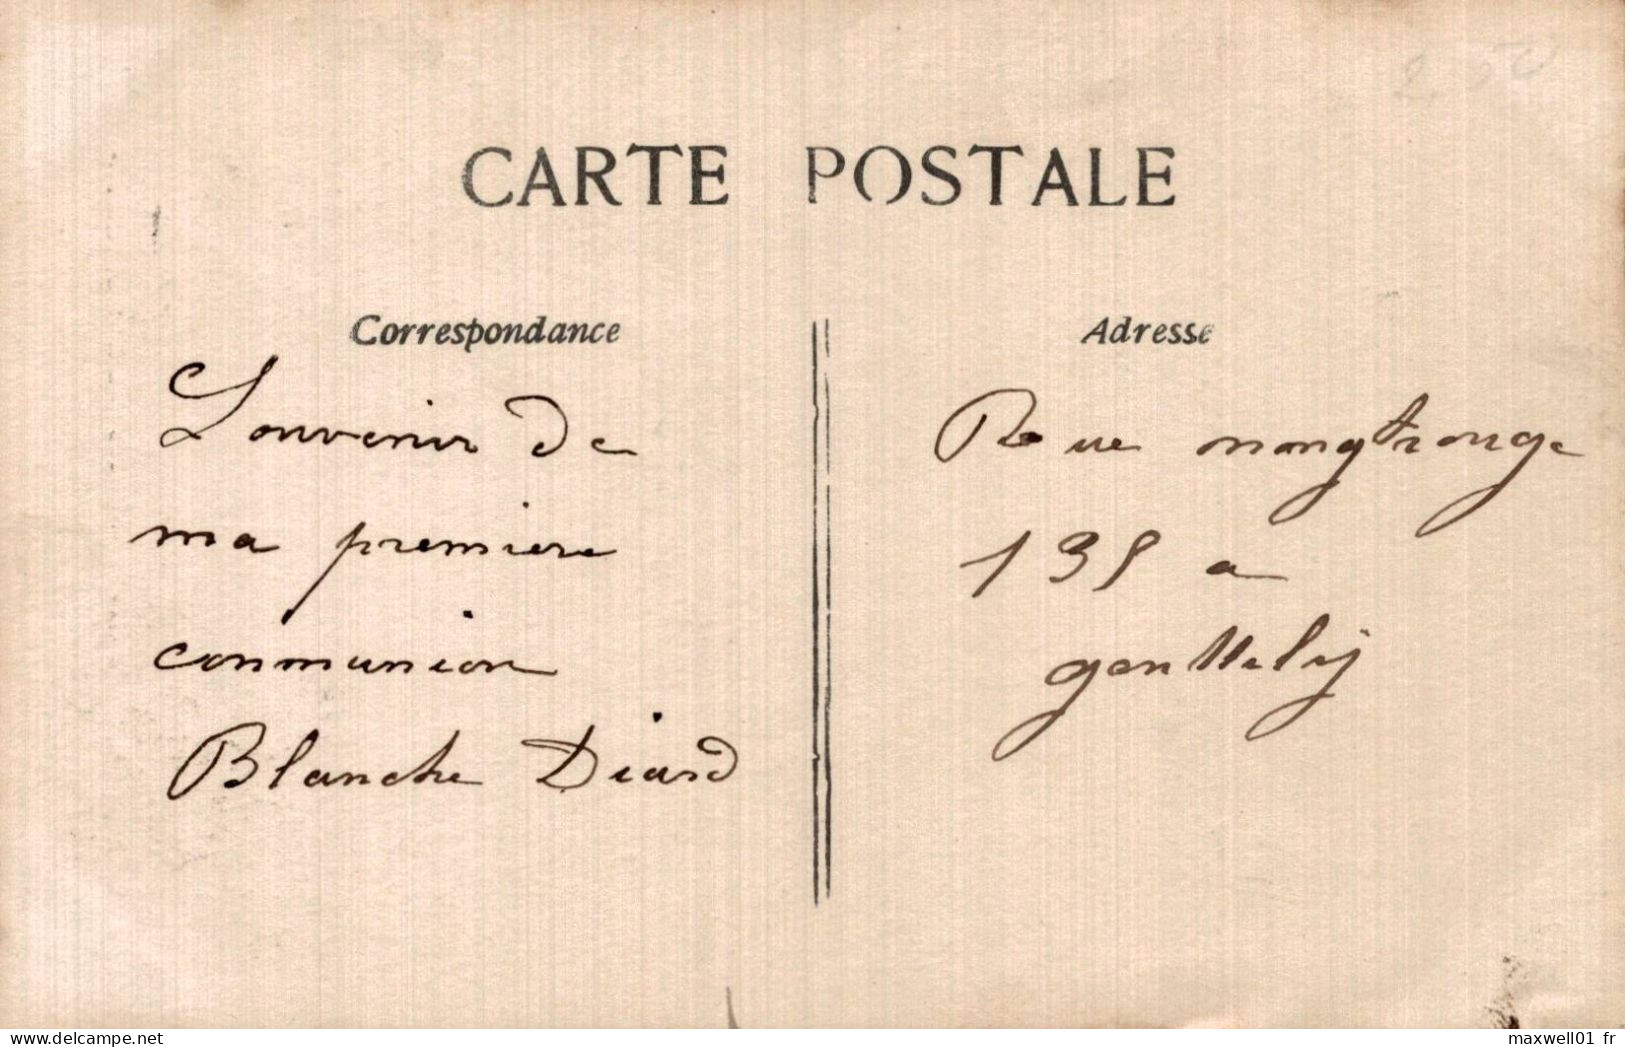 2,50
CARTE POSTALE
Correspondance
Souvenir de
ma premiere
conmunion
Blanche Diard
Adresse
Rue mongtrouge
138 a
genttelly
maxwell01 fr